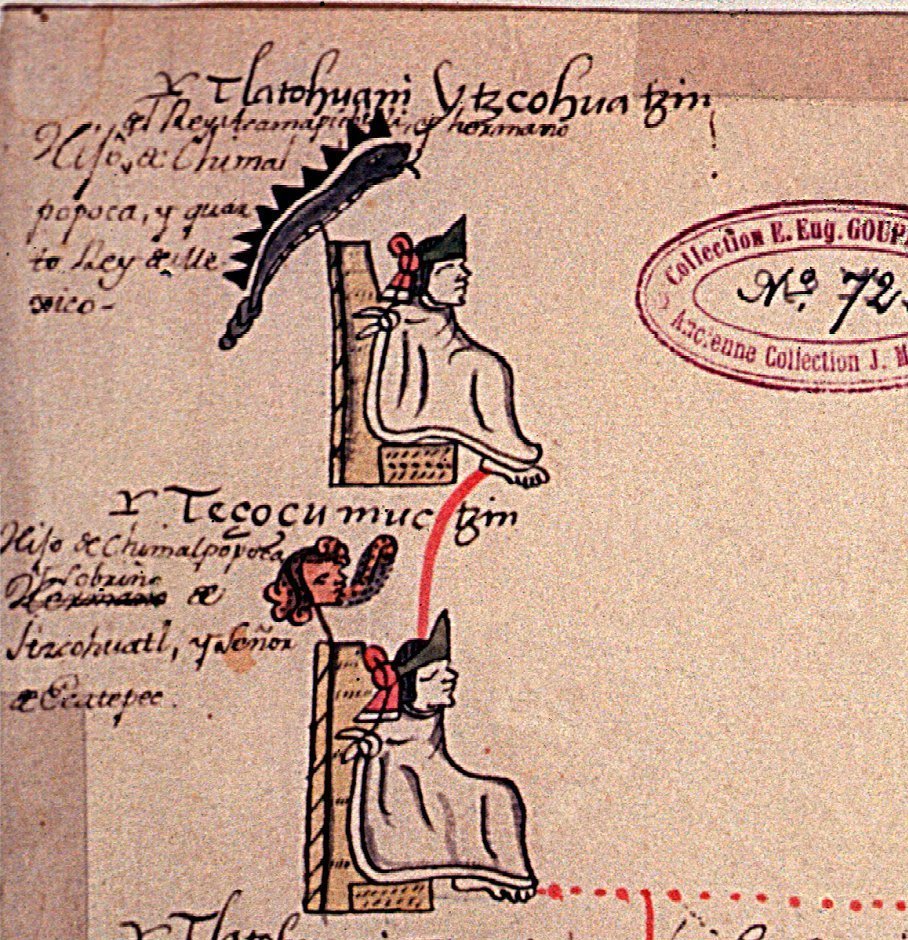 Y Tlatohuani Ytzcohuatzin
hermano
Hijo, de Chimal
popoca, y quar
to Rey de Me
xico-
Collection E. Eug. GOUP
No. 72
Ancienne Collection J. M
Y Teçoçumuctzin
Hijo de Chimalpopoca
y sobrino
de
Itzcohuatl, y Señor
de Ecatepec.
Y Tlatohuani